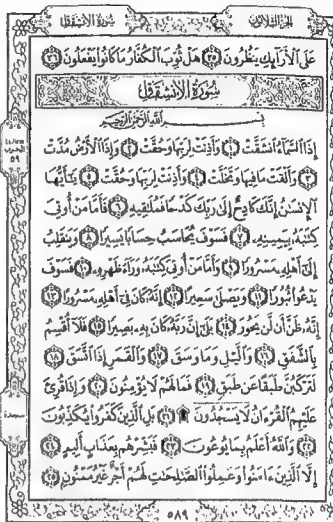 الجزء الثلاثون
سورة الانشقاق
عَلَى الْأَرَآئِكِ يَنظُرُونَ ٣٥ هَلْ ثُوِّبَ الْكُفَّارُ مَا كَانُوا۟ يَفْعَلُونَ ٣٦
سُورَةُ الِانشِقَاقِ
بِسْمِ اللَّهِ الرَّحْمَٰنِ الرَّحِيمِ
إِذَا السَّمَآءُ انشَقَّتْ ١ وَأَذِنَتْ لِرَبِّهَا وَحُقَّتْ ٢ وَإِذَا الْأَرْضُ مُدَّتْ
٣ وَأَلْقَتْ مَا فِيهَا وَتَخَلَّتْ ٤ وَأَذِنَتْ لِرَبِّهَا وَحُقَّتْ ٥ يَٰٓأَيُّهَا
الْإِنسَٰنُ إِنَّكَ كَادِحٌ إِلَىٰ رَبِّكَ كَدْحًا فَمُلَٰقِيهِ ٦ فَأَمَّا مَنْ أُوتِىَ
كِتَٰبَهُۥ بِيَمِينِهِۦ ٧ فَسَوْفَ يُحَاسَبُ حِسَابًا يَسِيرًا ٨ وَيَنقَلِبُ
إِلَىٰٓ أَهْلِهِۦ مَسْرُورًا ٩ وَأَمَّا مَنْ أُوتِىَ كِتَٰبَهُۥ وَرَآءَ ظَهْرِهِۦ ١٠ فَسَوْفَ
يَدْعُوا۟ ثُبُورًا ١١ وَيَصْلَىٰ سَعِيرًا ١٢ إِنَّهُۥ كَانَ فِىٓ أَهْلِهِۦ مَسْرُورًا ١٣
إِنَّهُۥ ظَنَّ أَن لَّن يَحُورَ ١٤ بَلَىٰٓ إِنَّ رَبَّهُۥ كَانَ بِهِۦ بَصِيرًا ١٥ فَلَآ أُقْسِمُ
بِالشَّفَقِ ١٦ وَالَّيْلِ وَمَا وَسَقَ ١٧ وَالْقَمَرِ إِذَا اتَّسَقَ ١٨
لَتَرْكَبُنَّ طَبَقًا عَن طَبَقٍ ١٩ فَمَا لَهُمْ لَا يُؤْمِنُونَ ٢٠ وَإِذَا قُرِئَ
عَلَيْهِمُ الْقُرْءَانُ لَا يَسْجُدُونَ ۩ ٢١ بَلِ الَّذِينَ كَفَرُوا۟ يُكَذِّبُونَ
٢٢ وَاللَّهُ أَعْلَمُ بِمَا يُوعُونَ ٢٣ فَبَشِّرْهُم بِعَذَابٍ أَلِيمٍ ٢٤
إِلَّا الَّذِينَ ءَامَنُوا۟ وَعَمِلُوا۟ الصَّٰلِحَٰتِ لَهُمْ أَجْرٌ غَيْرُ مَمْنُونٍ ٢٥
الحزب
٥٩
سجدة
٥٨٩